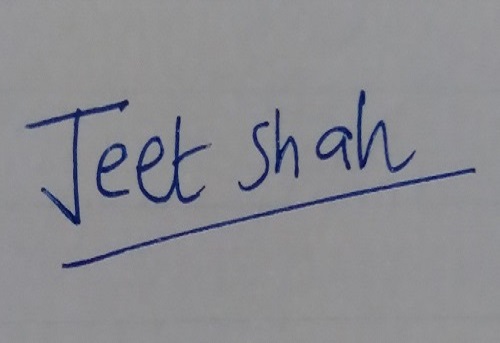 Jeet shah